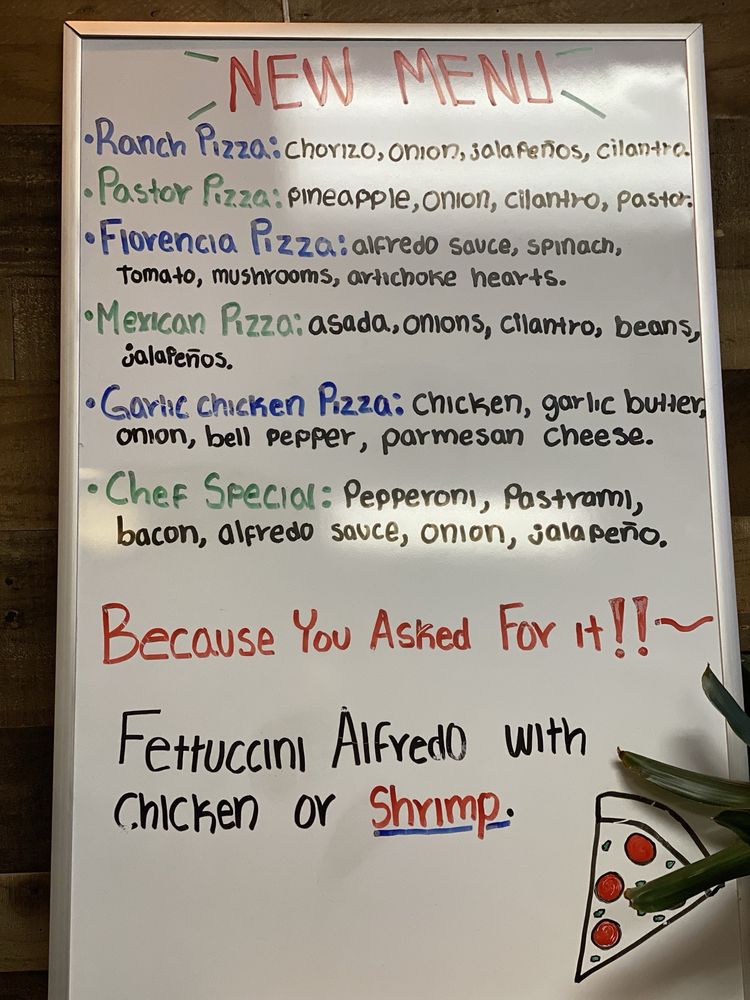 NEW MENU
•Ranch Pizza: chorizo, onion, jalapeños, cilantro.
•Pastor Pizza: pineapple, onion, cilantro, pastor.
•Florencia Pizza: alfredo sauce, spinach,
Tomato, mushrooms, artichoke hearts.
•Mexican Pizza: asada, onions, cilantro, beans,
jalapeños.
•Garlic chicken Pizza: chicken, garlic butter,
onion, bell pepper, parmesan cheese.
•Chef Special: Pepperoni, Pastrami,
bacon, alfredo sauce, onion, jalapeño.
Because You Asked For it!!~
Fettuccini Alfredo with
chicken or Shrimp.